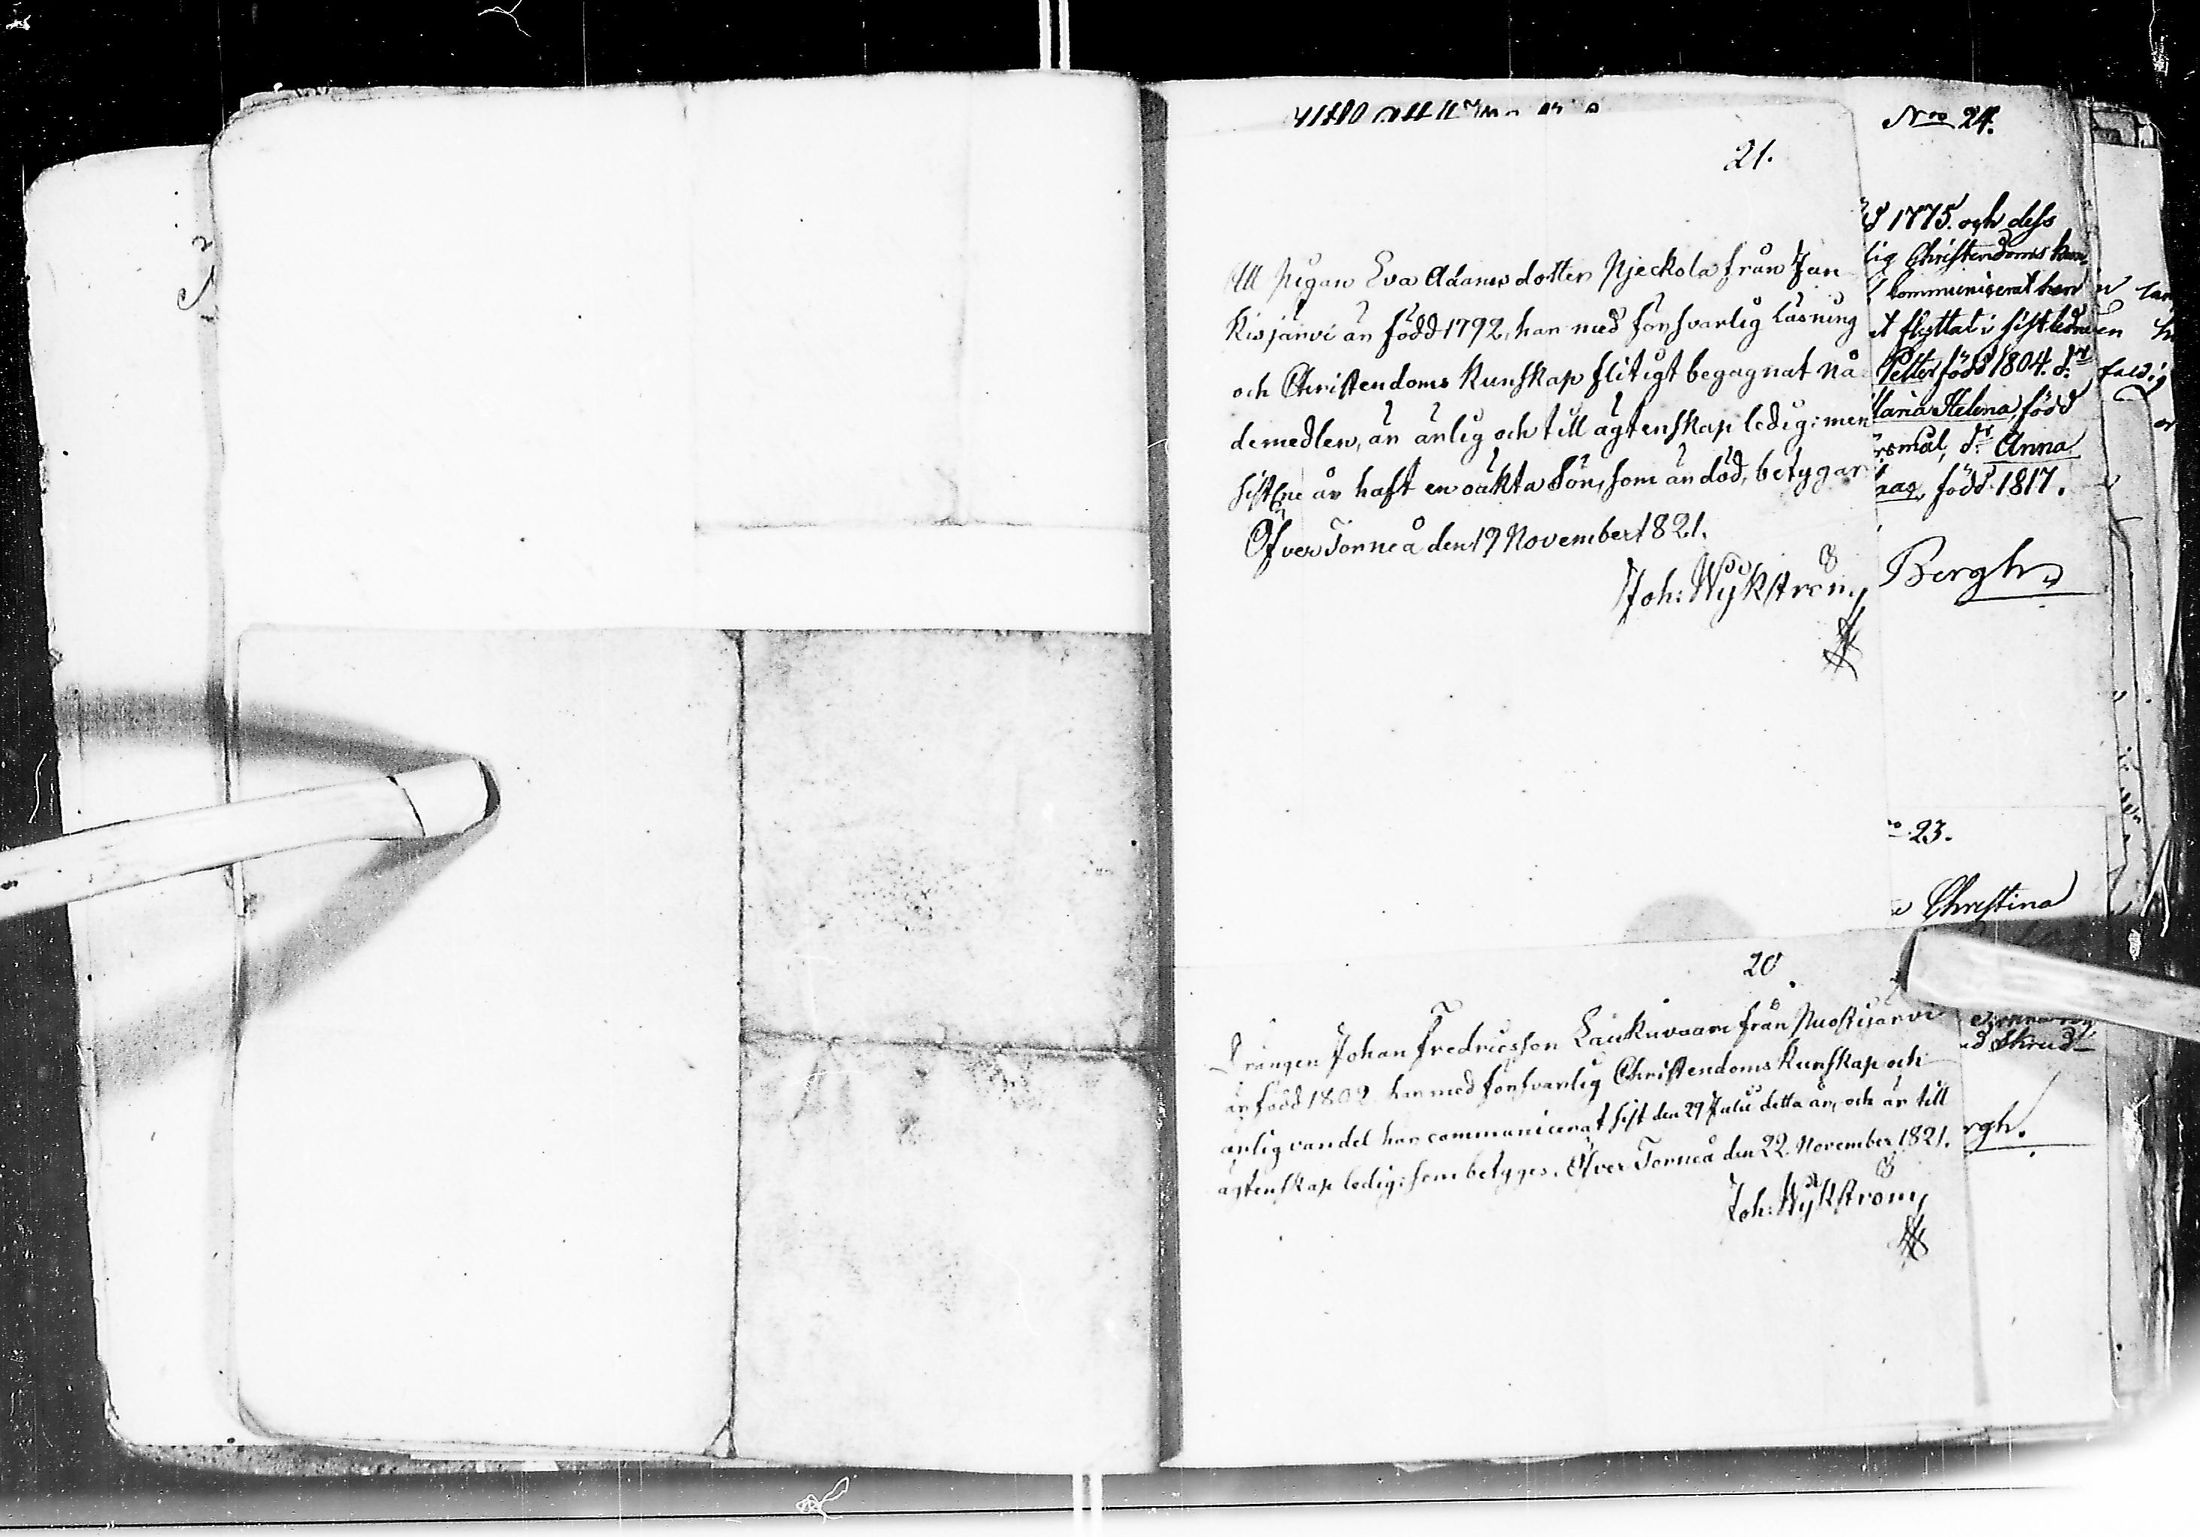 21.
Att Pigan Eva Adamsdotter Njeckola från Jun
kisjärvi är född 1792, har med försvarlig läsning
och Christendoms Kunskap flitigt begagnat nå
demedlen, är ärlig och till ägtenskap ledig: men
sistne år haft en oäkta Son, som är död, betygar
Öfver Torneå den 19 November 1821.
Joh: Wykström
20.
Drängen Johan Fredricsson Laukuvaara från Muotijärvi
är född 1802 har med försvarlig Christendoms Kunskap och
ärlig vandel har communicerat sist den 29 Julii detta år, och är till
ägtenskap ledig: som betyges. Öfver Torneå den 22 November 1821.
Joh: Wykström
Nro 24.
1775. och dess
lig Christendoms kun
communicerat har
t flyttat i sistledne
Petter född 1804. dr
Maria Helena, född
rsmål, dr Anna
född 1817.
Bergh
23.
Christina
rgh.